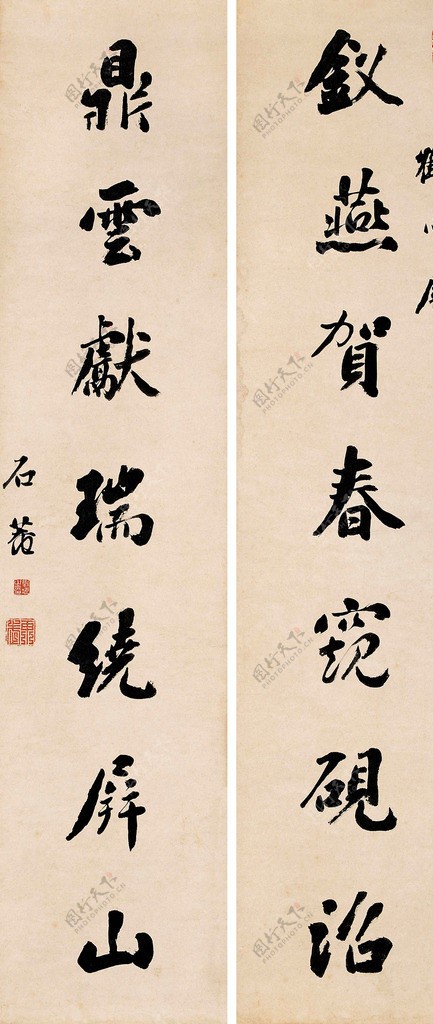 釵燕賀春窺硯沼
鼎雲獻瑞繞屏山
石菴
图行天下
PHOTOPHOTO.CN